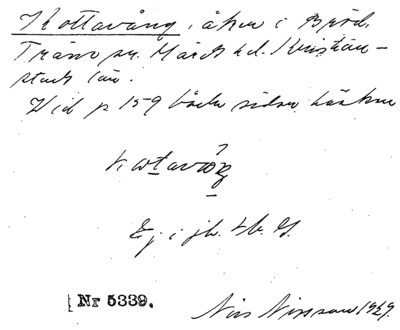 Kottavång, åker i Bröd,
Träne sn. Närds hd. Kristian-
stads län.
Vid p 159 båda sidor bäcken
kotavåŋ
Ej i jb. Lb. G.
Nr 5339.
Nils Nilsson 1929.